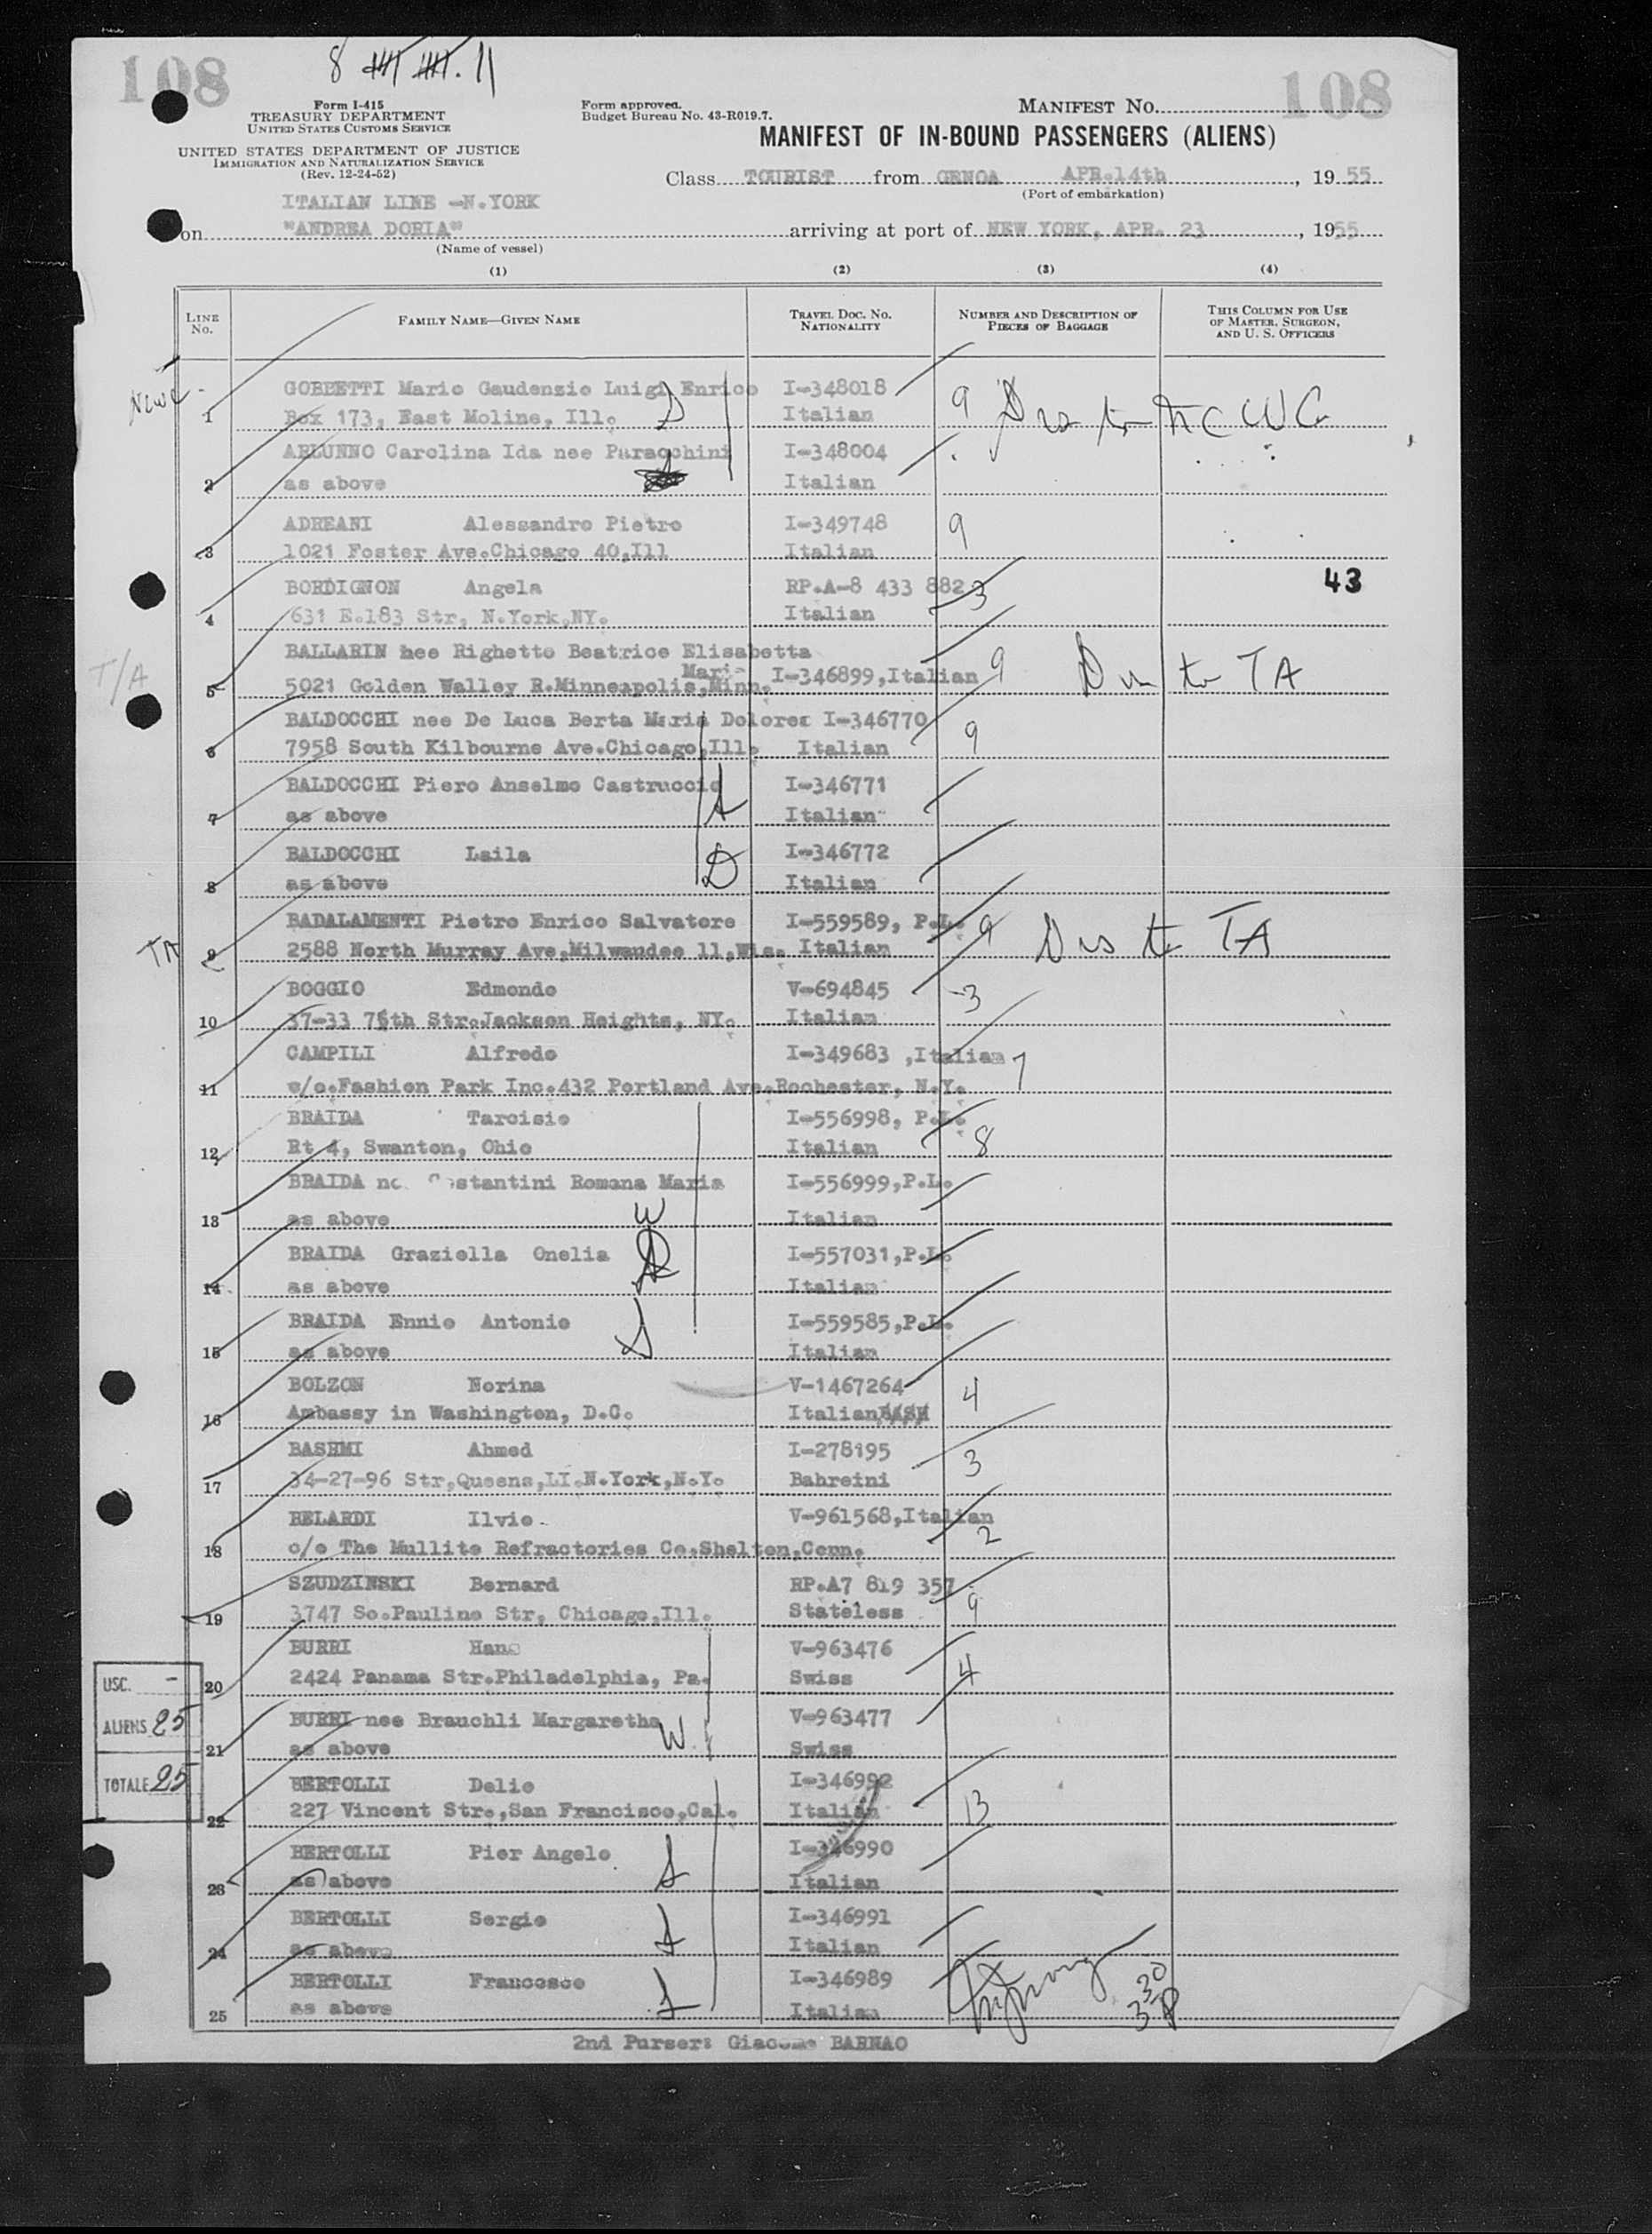 108
8 . 11
108
Form I-415
TREASURY DEPARTMENT
UNITED STATES CUSTOMS SERVICE
UNITED STATES DEPARTMENT OF JUSTICE
IMMIGRATION AND NATURALIZATION SERVICE
(Rev. 12-24-52)
Form approved.
Budget Bureau No. 43-R019.7.
MANIFEST NO.
MANIFEST OF IN-BOUND PASSENGERS (ALIENS)
Class TOURIST from GENOA APR.14th, 1955
(Port of embarkation)
ITALIAN LINE -N.YORK
on "ANDREA DORIA" arriving at port of NEW YORK, APR. 23, 1955
(Name of vessel)
(1) (2) (3) (4)
LINE No. FAMILY NAME—GIVEN NAME TRAVEL DOC. NO. NATIONALITY NUMBER AND DESCRIPTION OF PIECES OF BAGGAGE THIS COLUMN FOR USE OF MASTER, SURGEON, AND U. S. OFFICERS
GOBBETTI Mario Gaudenzio Luigi Enrico I-348018 9
1 Box 173, East Moline, Ill. Italian
ARLUNNO Carolina Ida nee Paracchini I-348004
2 as above Italian
ADREANI Alessandro Pietro I-349748 9
3 1021 Foster Ave.Chicago 40,Ill Italian
BORDIGNON Angela RP.A-8 433 882 3 43
4 631 E.183 Str, N.York,NY. Italian
BALLARIN nee Righetto Beatrice Elisabetta
T/A Maria 9 Dis to TA
5 5021 Golden Walley R.Minneapolis,Minn. I-346899,Italian
BALDOCCHI nee De Luca Berta Maria Dolores I-346770 9
6 7958 South Kilbourne Ave.Chicago,Ill. Italian
BALDOCCHI Piero Anselmo Castruccio I-346771
7 as above Italian
BALDOCCHI Laila D I-346772
8 as above Italian
BADALAMENTI Pietro Enrico Salvatore I-559589, P.L. 9 Dis to TA
TA 9 2588 North Murray Ave,Milwaudee 11,Wis. Italian
BOGGIO Edmondo V-694845 3
10 37-33 75th Str.Jackson Heights, NY. Italian
CAMPILI Alfredo I-349683 ,Italian 7
11 c/o.Fashion Park Inc.432 Portland Ave.Rochester, N.Y.
BRAIDA Tarcisio I-556998, P.L. 8
12 Rt 4, Swanton, Ohio Italian
BRAIDA Costantini Romana Maria I-556999,P.L.
13 as above W Italian
BRAIDA Graziella Onelia I-557031,P.L.
14 as above Italian
BRAIDA Ennio Antonio I-559585,P.L.
15 as above Italian
BOLZON Norina V-1467264 4
16 Ambassy in Washington, D.C. Italian
BASHMI Ahmed I-278195 3
17 34-27-96 Str,Queens,LI.N.York,N.Y. Bahreini
BELARDI Ilvio V-961568,Italian 2
18 c/o The Mullite Refractories Co.Shelton,Conn.
SZUDZINSKI Bernard RP.A7 819 357 9
19 3747 So.Paulina Str, Chicago,Ill. Stateless
BURRI Hans V-963476 4
20 2424 Panama Str.Philadelphia, Pa. Swiss
BURRI nee Brauchli Margaretha W V-963477
21 as above Swiss
BERTOLLI Delio I-346992 13
22 227 Vincent Str.,San Francisco,Cal. Italian
BERTOLLI Pier Angelo I-346990
23 as above Italian
BERTOLLI Sergio I-346991
24 as above Italian
BERTOLLI Francesco I-346989
25 as above Italian
USC. -
ALIENS 25
TOTALE 25
2nd Purser: Giacomo BARNAO